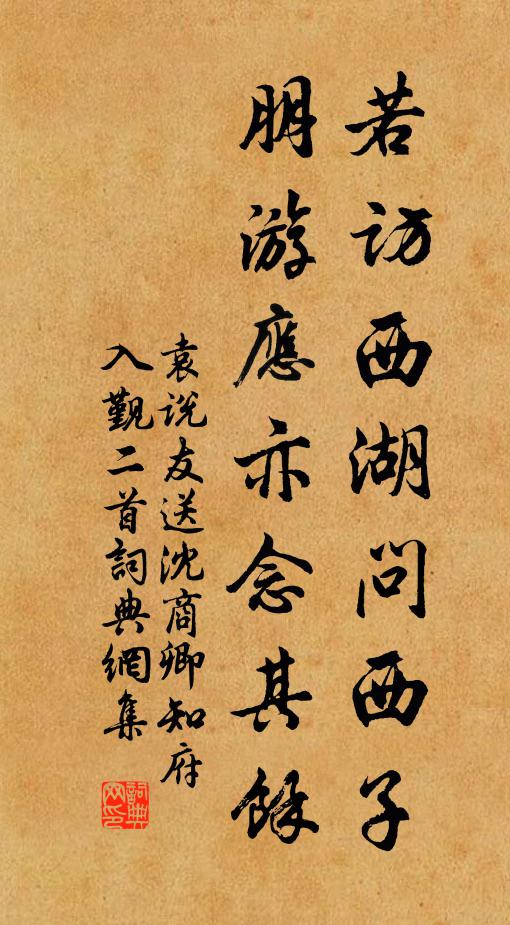 若訪西湖問西子
朋游應亦念其餘
袁说友送沈商卿知府
入觐二首詞典網集
詞典网印